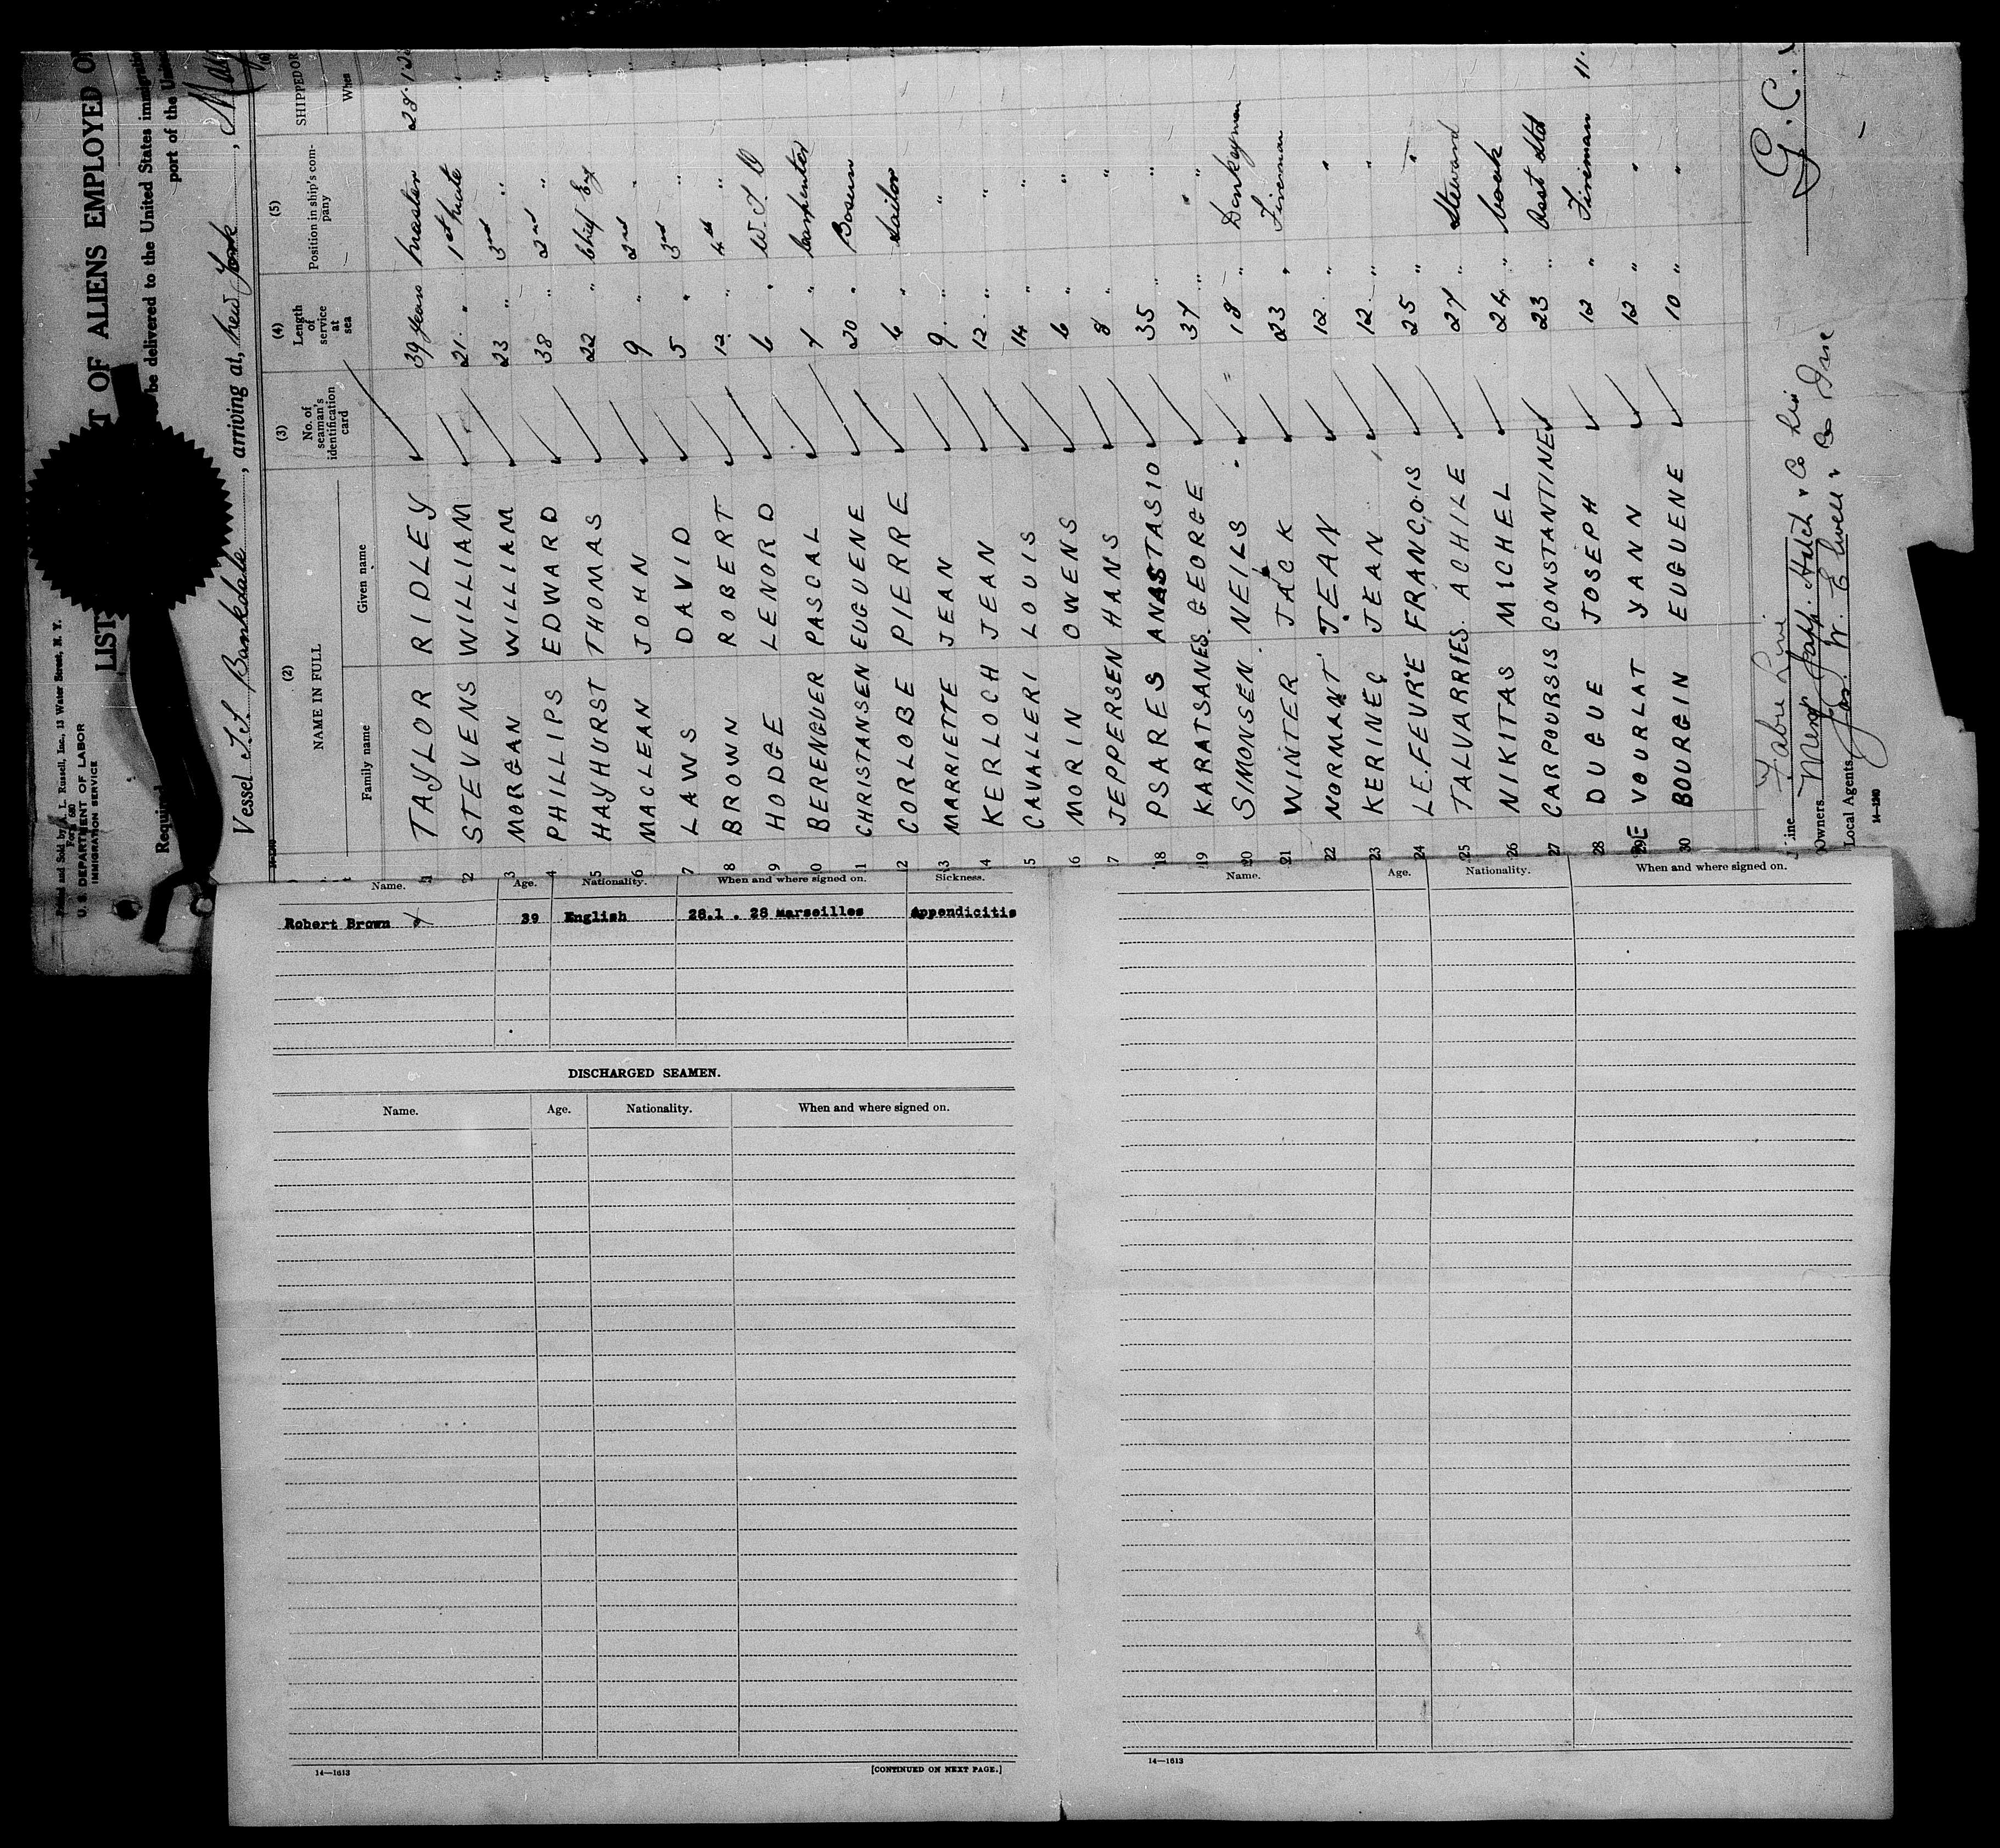 Printed and Sold by A. L. Russell, Inc., 13 Water Street, N. Y.
Form 680
U. S. DEPARTMENT OF LABOR
IMMIGRATION SERVICE
LIST OF ALIENS EMPLOYED O
Required be delivered to the United States immigratio
port of the Unit
Vessel S.S. Bankdale, arriving at, New York, May
(2) (3) (4) (5) (6)
NAME IN FULL No. of seaman's identification card Length of service at sea Position in ship's company SHIPPED OR
Family name Given name When
1 TAYLOR RIDLEY 39 years Master 28.1.28
2 STEVENS WILLIAM 21 " 1st Mate "
3 MORGAN WILLIAM 23 " 3rd " "
4 PHILLIPS EDWARD 38 " 2nd " "
5 HAYHURST THOMAS 22 " Chief Eng "
6 MACLEAN JOHN 9 " 2nd " "
7 LAWS DAVID 5 " 3rd " "
8 BROWN ROBERT 12 " 4th " "
9 HODGE LENORD 6 " W.T.O "
10 BERENGUER PASCAL 7 " Carpenter "
11 CHRISTANSEN EUGUENE 20 " Bosun "
12 CORLOBE PIERRE 6 " Sailor "
13 MARRIETTE JEAN 9 " "
14 KERLOCH JEAN 12 " "
15 CAVALLERI LOUIS 14 " "
16 MORIN OWENS 6 " "
17 JEPPERSEN HANS 8 " "
18 PSARES ANASTASIO 35 " "
19 KARATSANES GEORGE 37 " "
20 SIMONSEN NEILS 18 " Donkeyman
21 WINTER JACK 23 " Fireman
22 NORMANT JEAN 12 " "
23 KERINEC JEAN 12 " "
24 LE.FEVRE FRANCOIS 25 " "
25 TALVARRIES ACHILE 27 " Steward
26 NIKITAS MICHEL 24 " Cook
27 CARPOURSIS CONSTANTINE 23 " Asst Std
28 DUGUE JOSEPH 12 " Fireman 11.
29 VOURLAT YANN 12 " "
30 BOURGIN EUGUENE 10 " "
Line Fabre Line
Owners Mengel
Local Agents Jas. W. Elwell & Co Inc
G. C.
14—1240
Name. Age. Nationality. When and where signed on. Sickness.
Robert Brown 39 English 28.1 . 28 Marseilles Appendicitis
DISCHARGED SEAMEN.
Name. Age. Nationality. When and where signed on.
14—1613 [CONTINUED ON NEXT PAGE.]
Name. Age. Nationality. When and where signed on.
14—1613